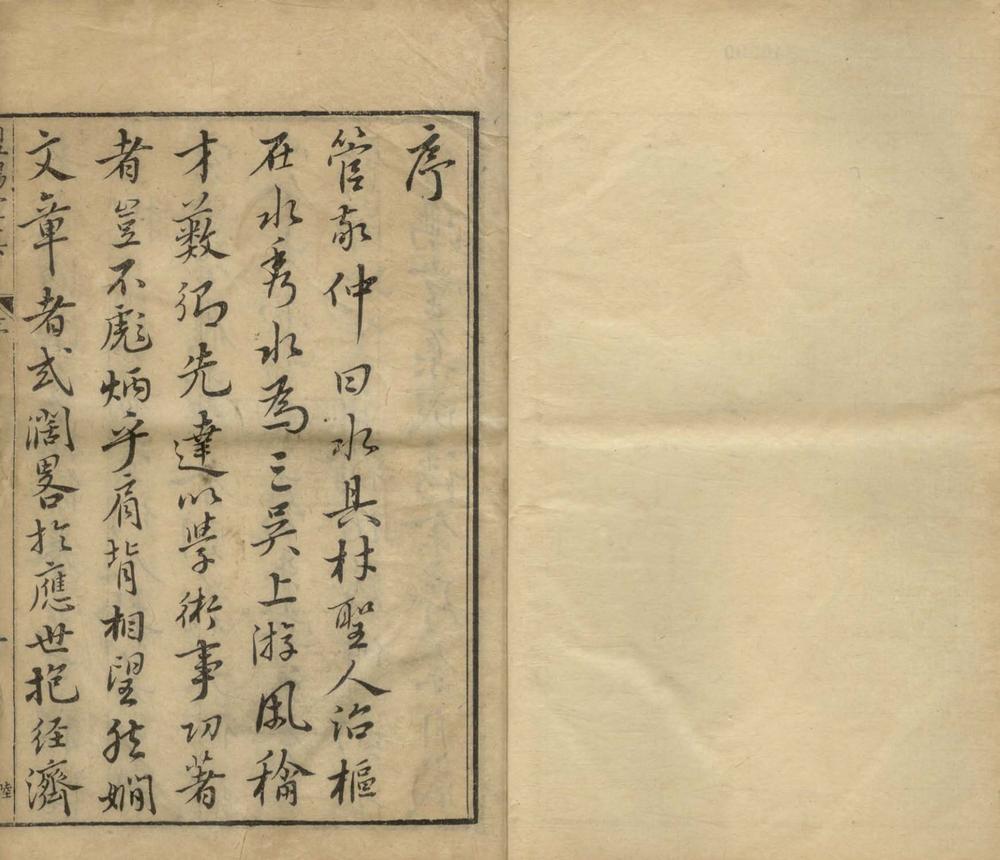 序
管敬仲曰水具材聖人治樞
在水秀水為三吳上游風稱
才藪鄉先達以學術事功著
者豈不彪炳乎肩背相望然嫺
文章者或濶畧於應世抱經濟